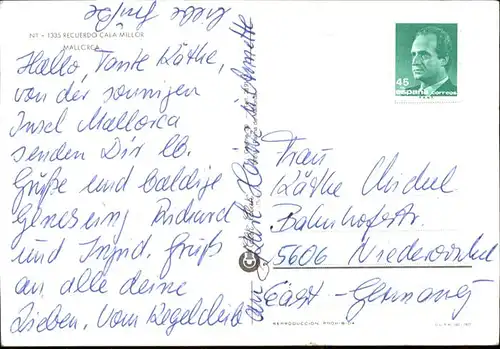 Nº - 1335 RECUERDO CALA MILLOR
MALLORCA
Hallo, Tante Käthe,
von der sonnigen
Insel Mallorca
senden Dir lb.
Grüße und baldige
Genesung Richard
und Ingrid. Gruß
an alle deine
Lieben. Vom
an
45
españa
correos
Frau
Käthe Michel
Bahnhofstr.
5606
East-Germany
REPRODUCCION PROHIBIDA